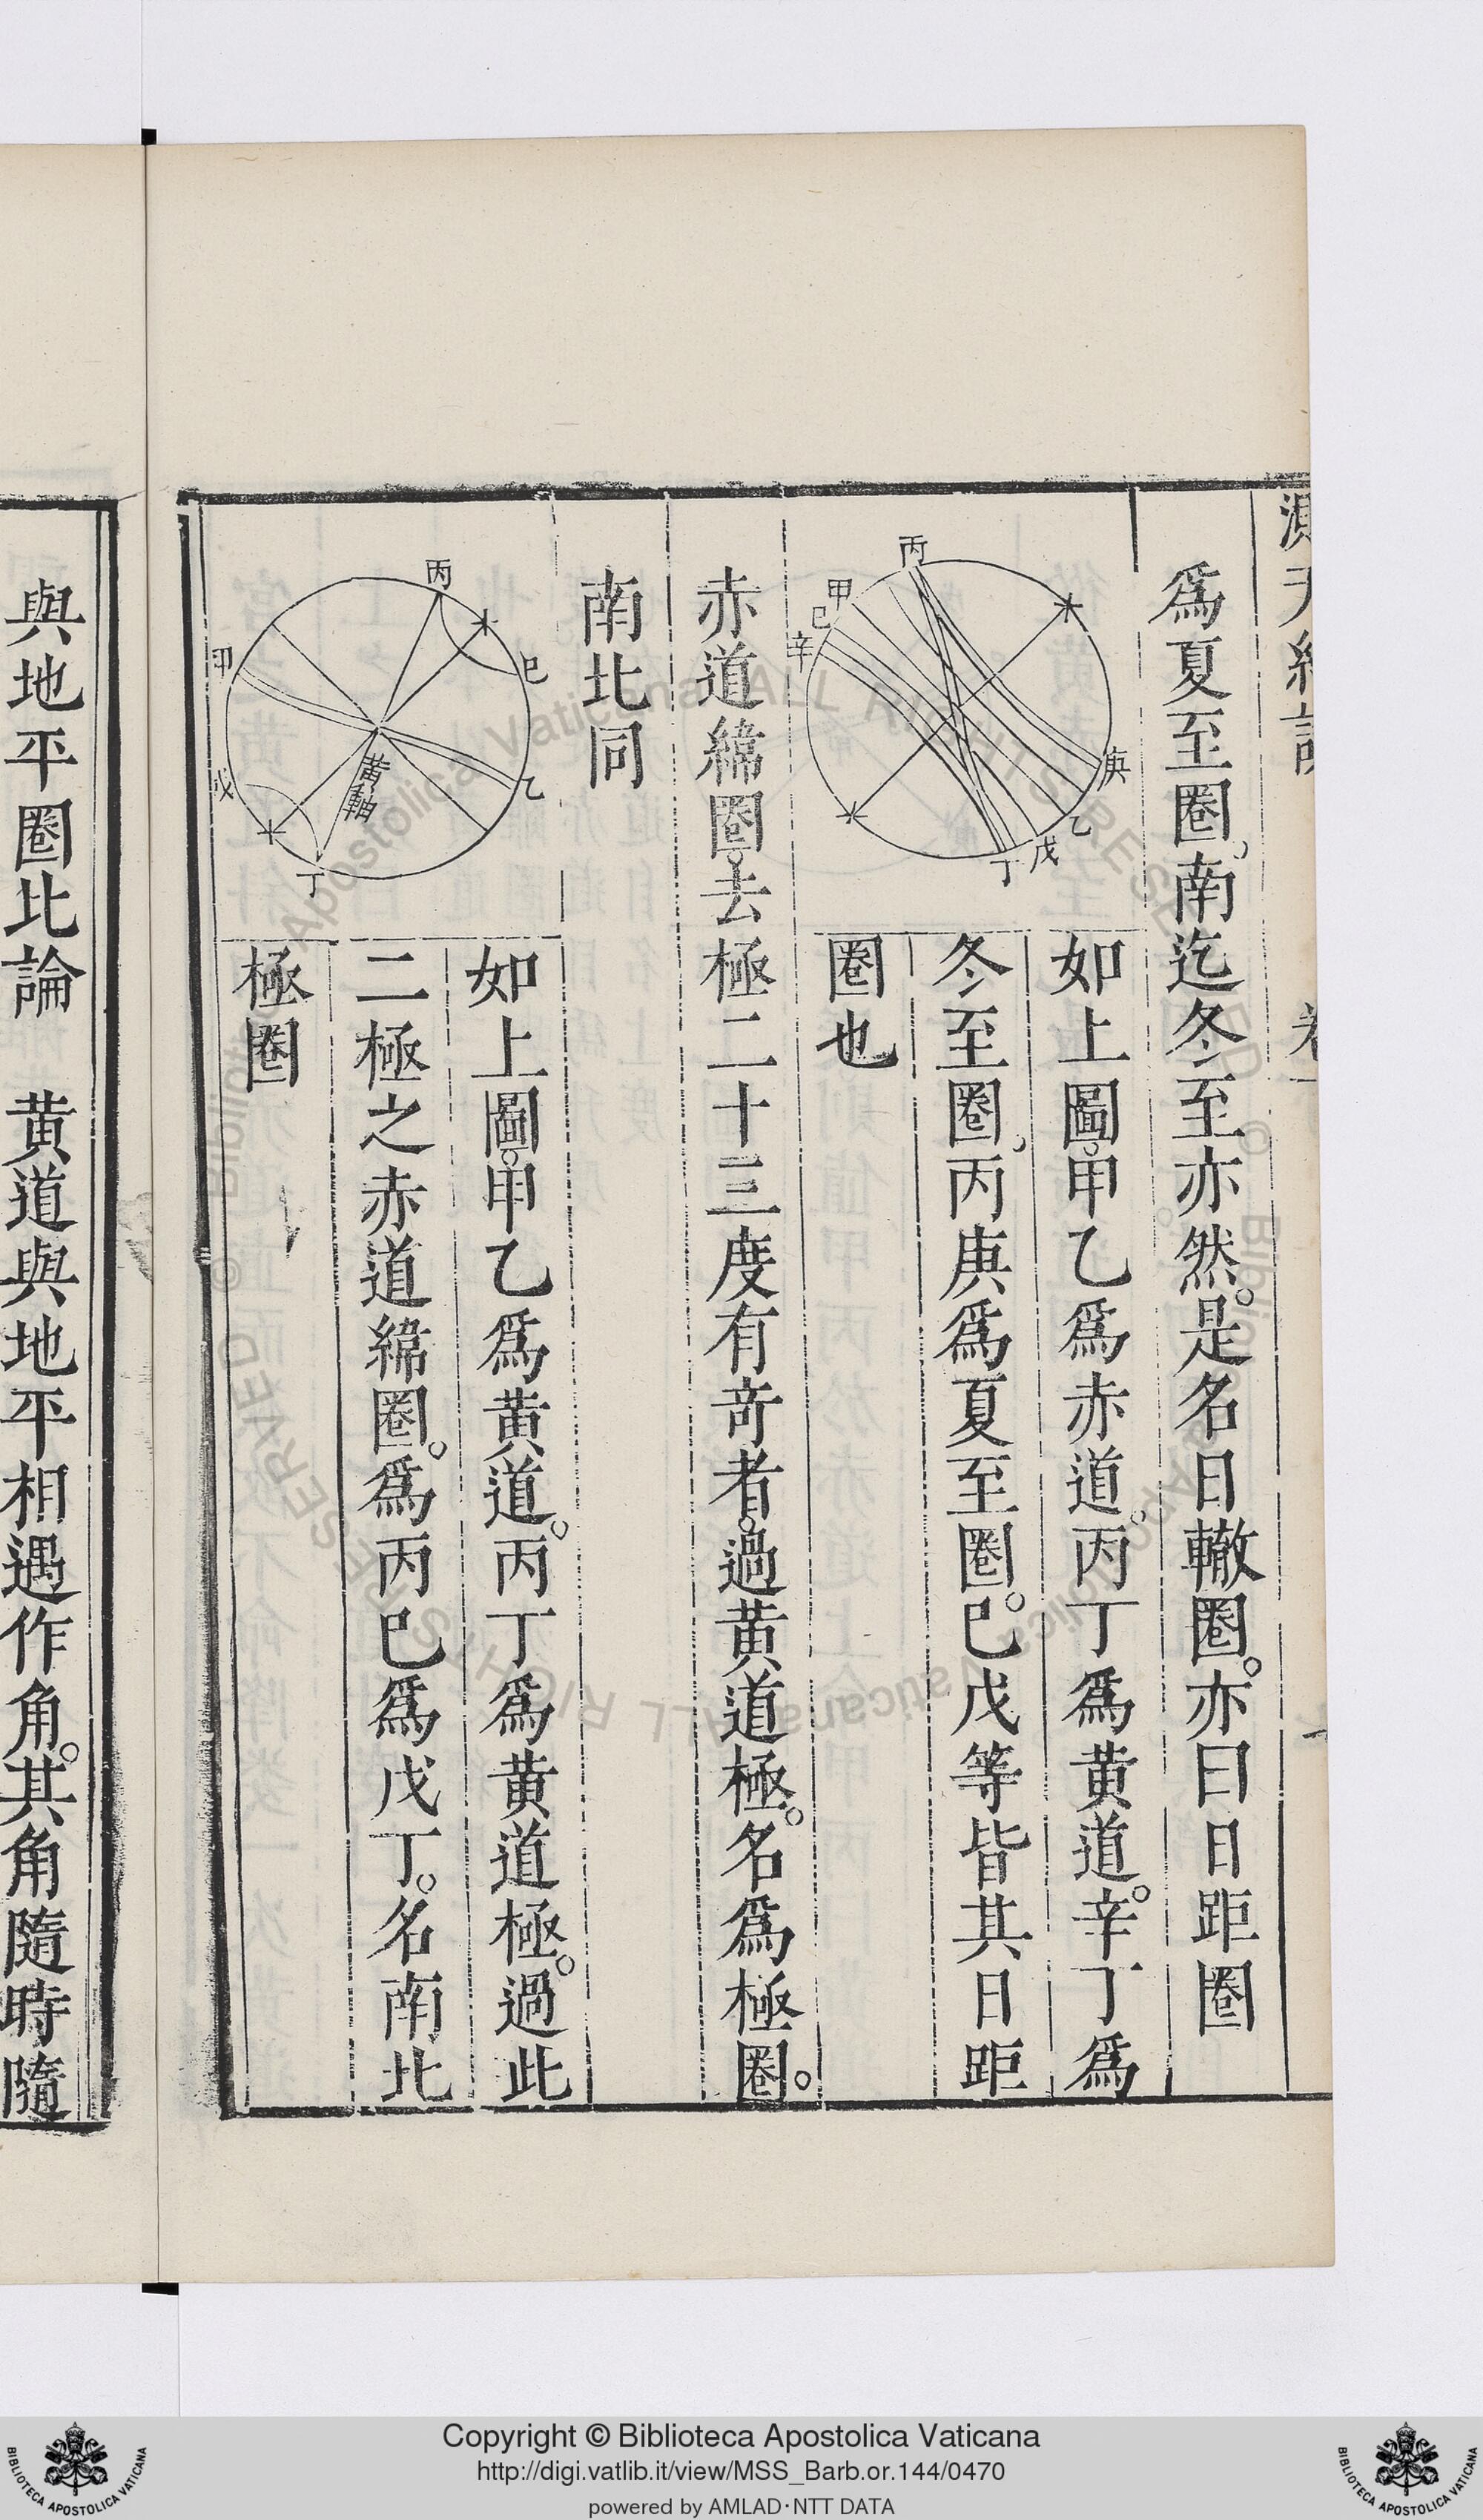 為夏至圈南迄冬至亦然是名日轍圈亦曰日距圈
丙
甲
巳
辛
庚
乙
戊
丁
如上圖甲乙為赤道丙丁為黃道辛丁為
冬至圈丙庚為夏至圈巳戊等皆其日距
圈也
赤道緯圈去極二十三度有竒者過黃道極名為極圈
南北同
丙
巳
甲
乙
戊
丁
黃軸
如上圖甲乙為黃道丙丁為黃道極過此
二極之赤道緯圈為丙巳為戊丁名南北
極圈
與地平圈比論　黃道與地平相遇作角其角隨時隨
Copyright © Biblioteca Apostolica Vaticana
http://digi.vatlib.it/view/MSS_Barb.or.144/0470
powered by AMLAD·NTT DATA
BIBLIOTECA APOSTOLICA VATICANA
BIBLIOTECA APOSTOLICA VATICANA